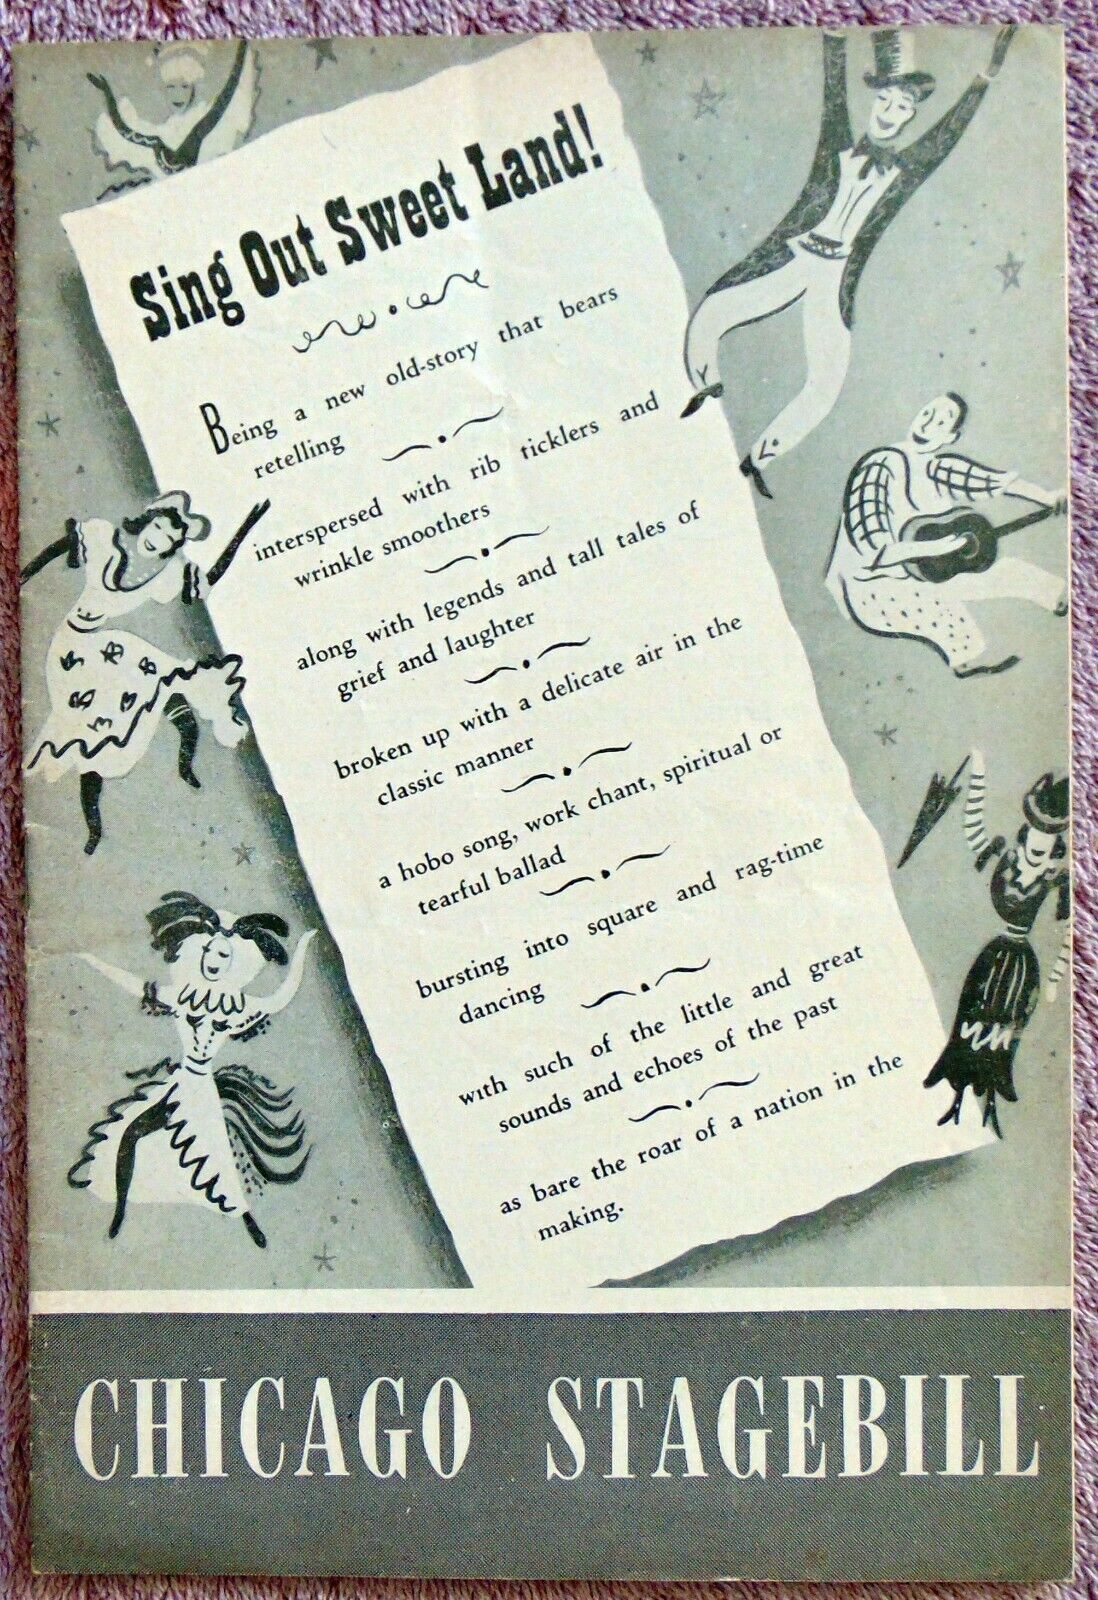 Sing Out Sweet Land!
Being a new old-story that bears
retelling
interspersed with rib ticklers and
wrinkle smoothers
along with legends and tall tales of
grief and laughter
broken up with a delicate air in the
classic manner
a hobo song, work chant, spiritual or
tearful ballad
bursting into square and rag-time
dancing
with such of the little and great
sounds and echoes of the past
as bare the roar of a nation in the
making.
CHICAGO STAGEBILL